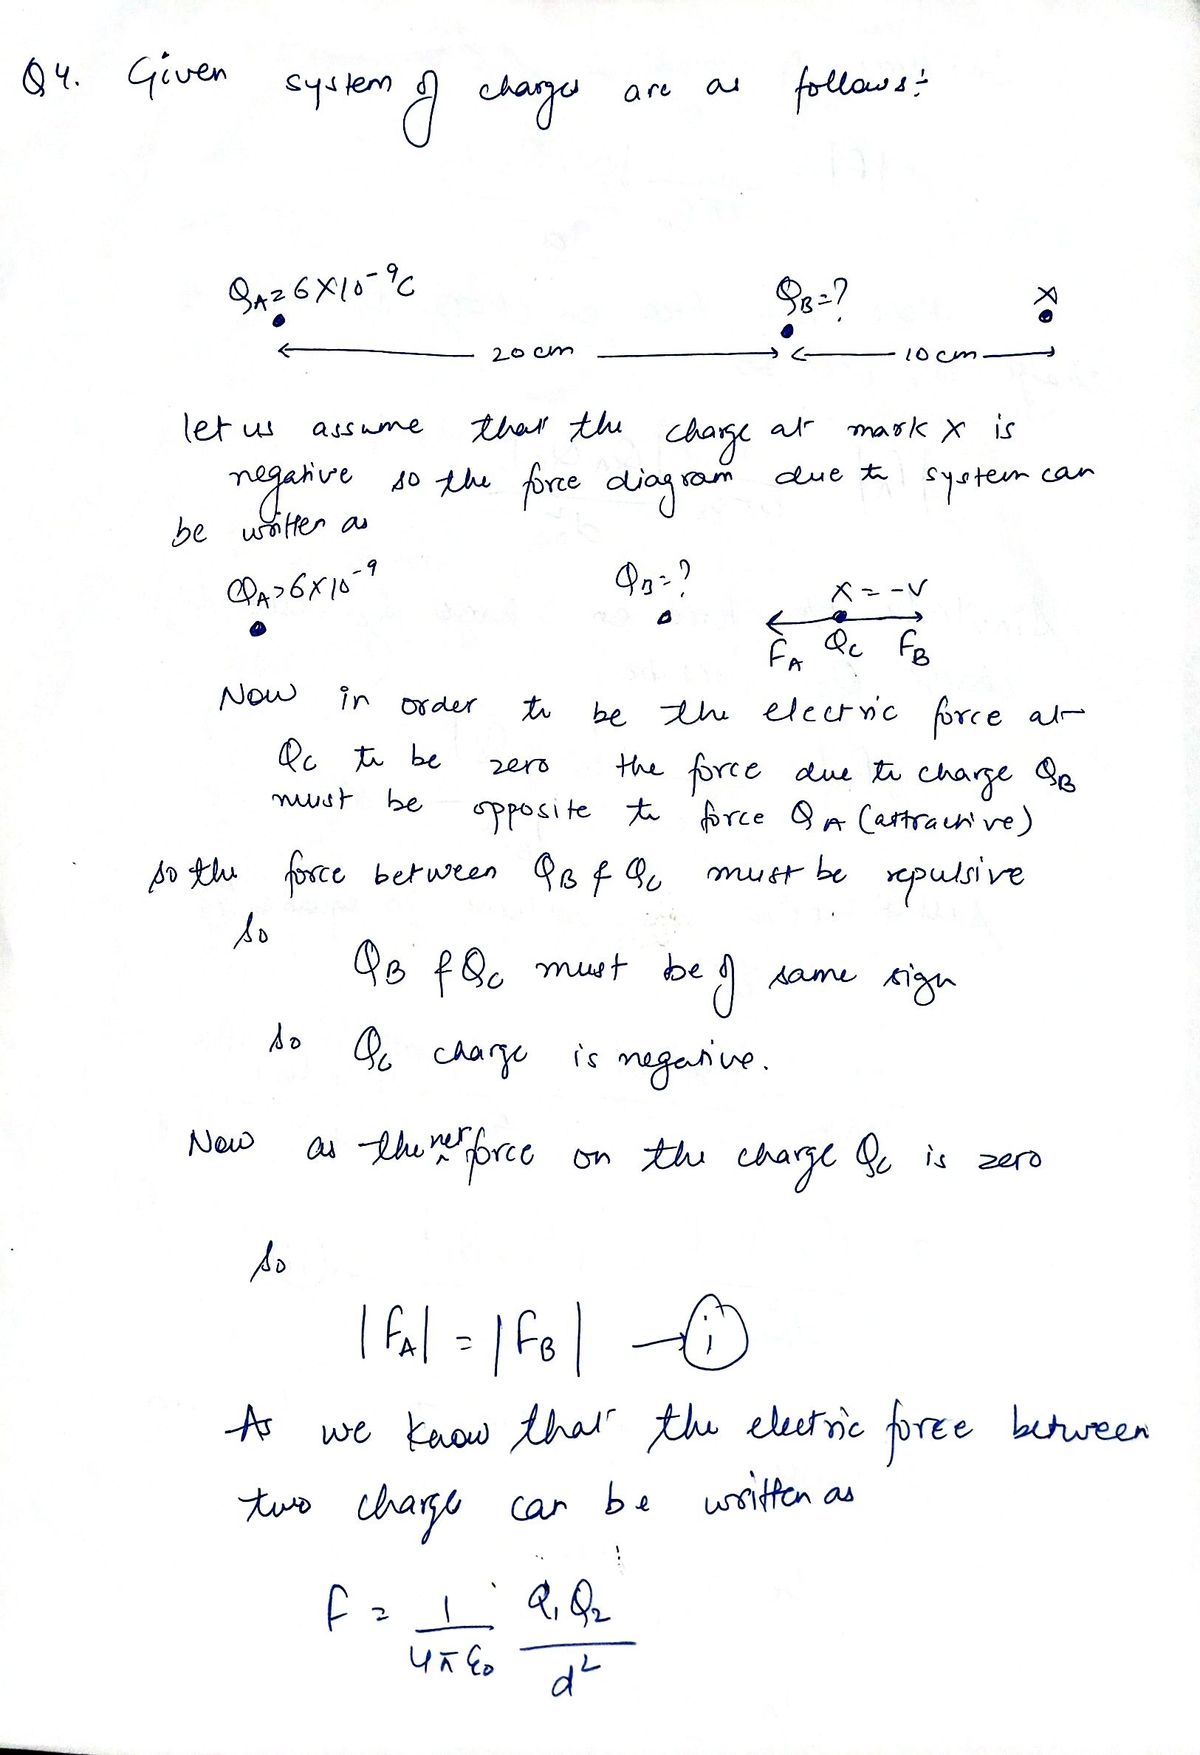 Q4. Given system of charges are as follows:-
QA=6X10-9C QB=? X
20 cm 10 cm
let us assume that the charge at mark X is
negative so the force diagram due to system can
be written as
QA=6X10-9 QB=? X=-v
FA QC FB
Now in order to be the electric force at
Qc to be zero the force due to charge QB
must be opposite to force QA (attractive)
so the force between QB & Qc must be repulsive
So
QB & Qc must be of same sign
So Qc charge is negative.
Now as the net force on the charge Qc is zero
So
|FA| = |FB| → i
As we know that the electric force between
two charge can be written as
F = 1/4πε0 Q1Q2/d²